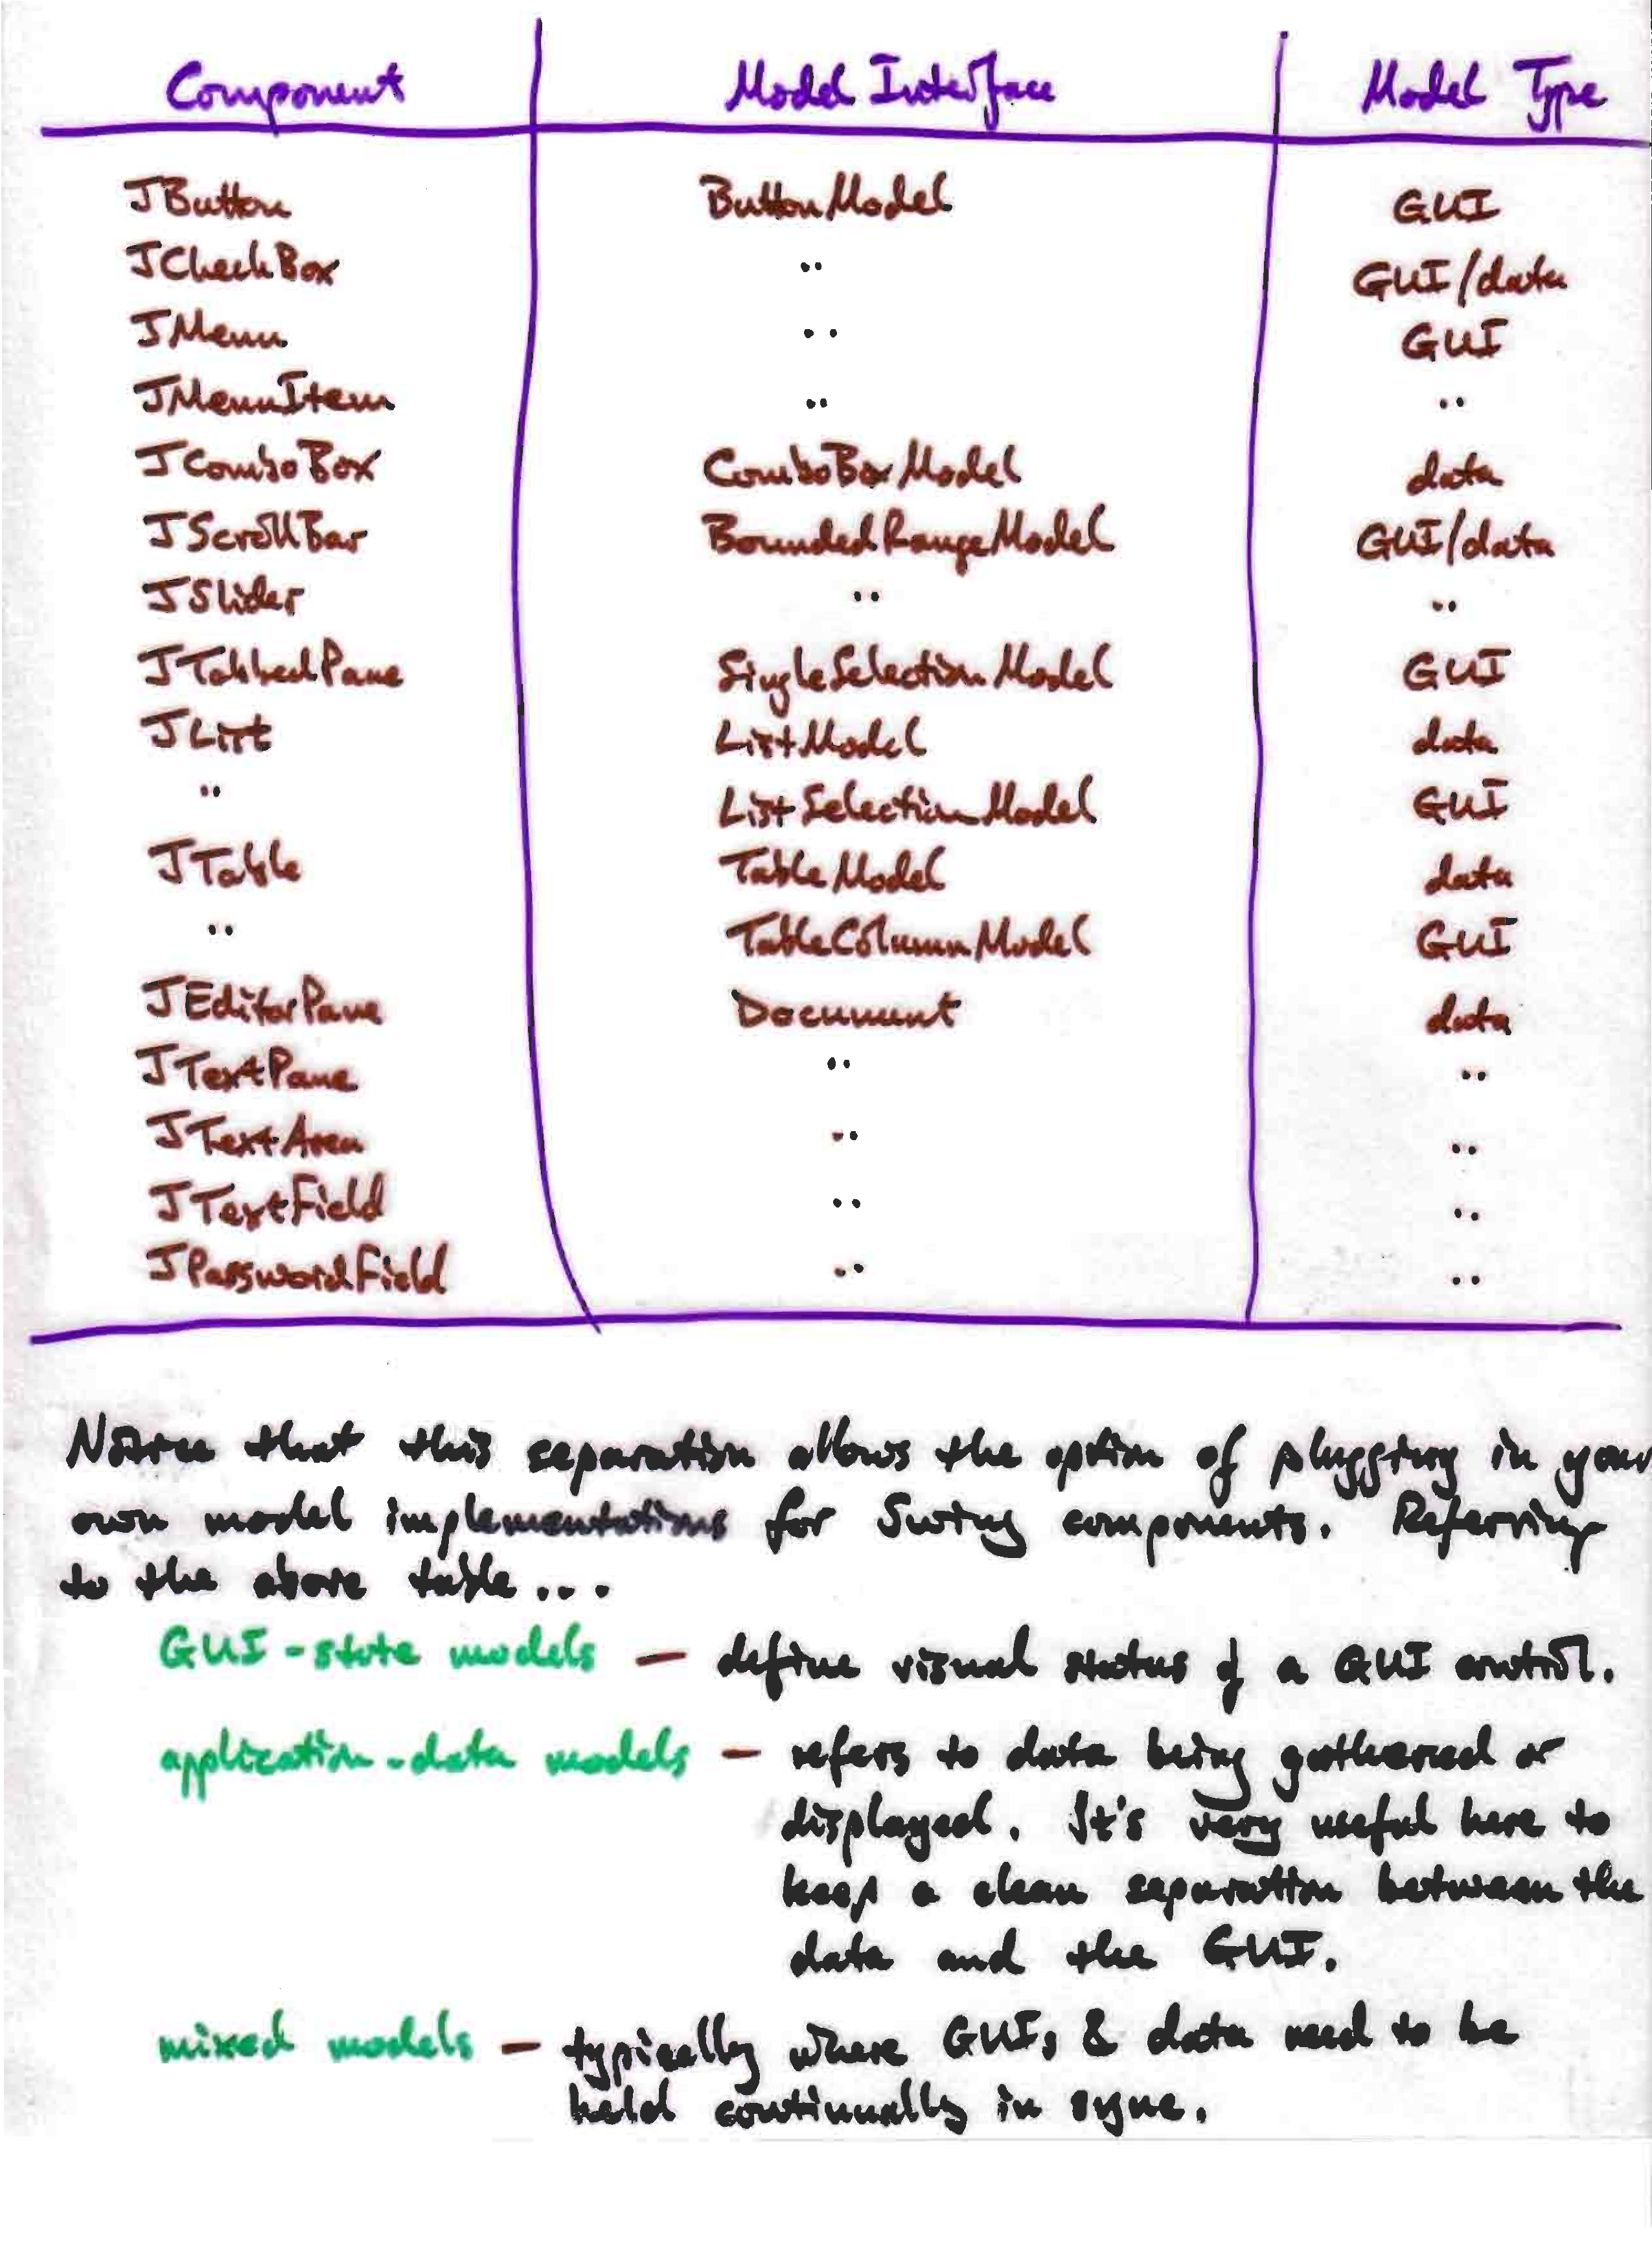 Component Model Interface Model Type
JButton ButtonModel GUI
JCheckBox " GUI/data
JMenu " GUI
JMenuItem " "
JComboBox ComboBoxModel data
JScrollBar BoundedRangeModel GUI/data
JSlider " "
JTabbedPane SingleSelectionModel GUI
JList ListModel data
" ListSelectionModel GUI
JTable TableModel data
" TableColumnModel GUI
JEditorPane Document data
JTextPane " "
JTextArea " "
JTextField " "
JPasswordField " "
Notice that this separation allows the option of plugging in your
own model implementations for Swing components. Referring
to the above table...
GUI-state models — define visual status of a GUI control.
application-data models — refers to data being gathered or
displayed. It's very useful here to
keep a clean separation between the
data and the GUI.
mixed models — typically where GUIs & data need to be
held continually in sync.